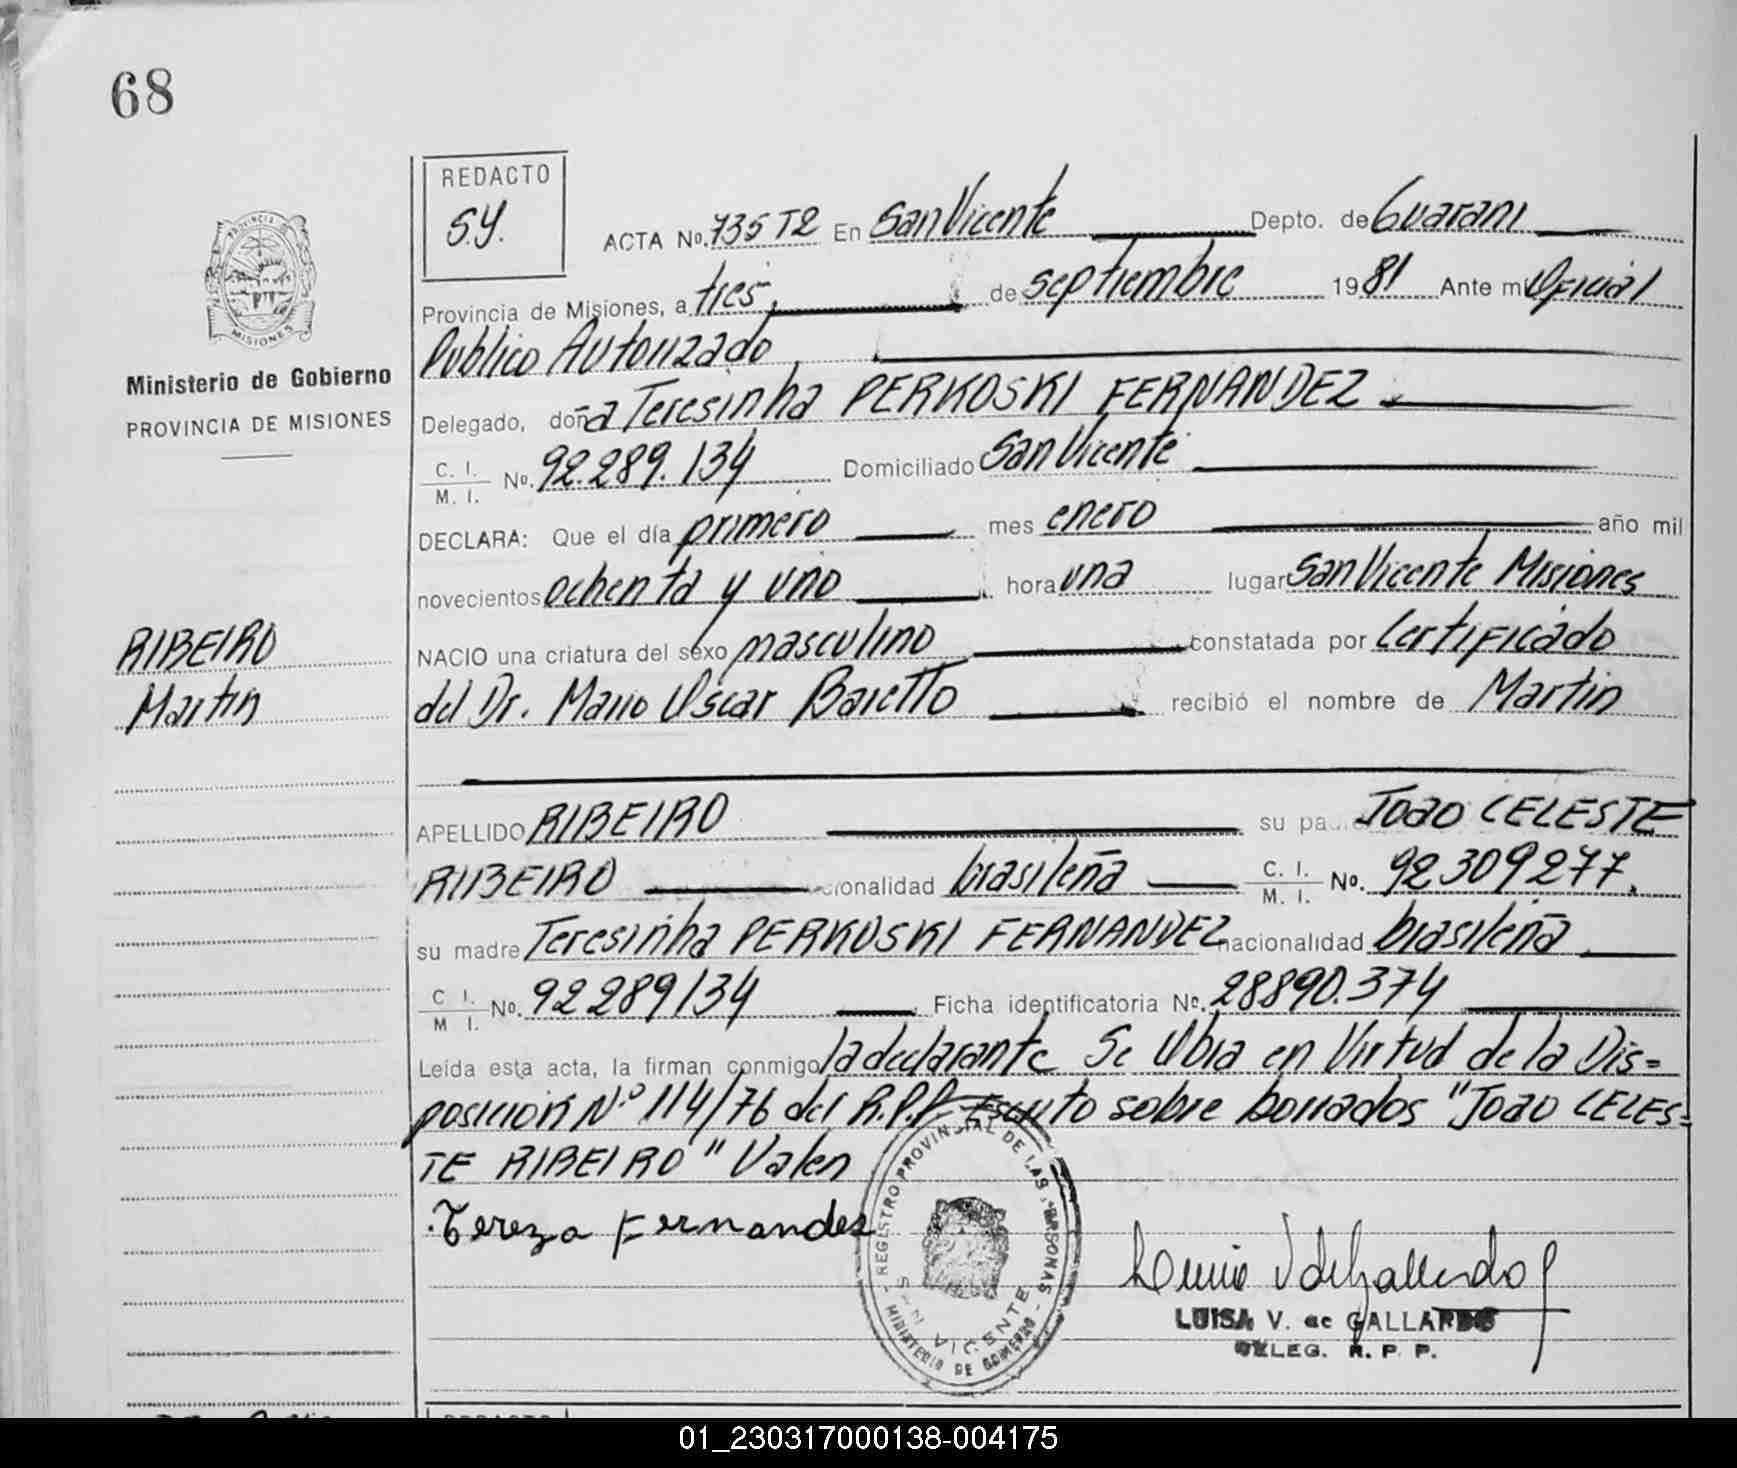 68
REDACTO
S.Y.
ACTA No. 735 T2 En San Vicente Depto. de Guarani
Provincia de Misiones, a tres, de septiembre 1981 Ante mi Oficial
Publico Autorizado
Ministerio de Gobierno
PROVINCIA DE MISIONES
Delegado, doña Teresinha PERKOSKI FERNANDEZ
C. I. / M. I. No. 92.289.134 Domiciliado San Vicente
DECLARA: Que el día primero mes enero año mil
novecientos ochenta y uno hora una lugar San Vicente Misiones
RIBEIRO
NACIO una criatura del sexo masculino constatada por Certificado
Martin
del Dr. Mario Oscar Baretto recibió el nombre de Martin
APELLIDO RIBEIRO su pa JOAO CELESTE
RIBEIRO cionalidad brasileña C. I. / M. I. No. 92309277.
su madre Teresinha PERKOSKI FERNANDEZ nacionalidad brasileña
C I. / M I. No. 92289134 Ficha identificatoria No. 28890.374
Leída esta acta, la firman conmigo la declarante Se Obra en Virtud de la Dis=
posicion N° 114/76 del R.P.P. Escrito sobre borrados "JOAO CELES=
TE RIBEIRO" Valen
Tereza Fernandes
REGISTRO PROVINCIAL DE LAS PERSONAS
MINISTERIO DE GOBIERNO
SAN VICENTE
LUISA V. de GALLARDO
DELEG. R. P. P.
REDACTO
01_230317000138-004175